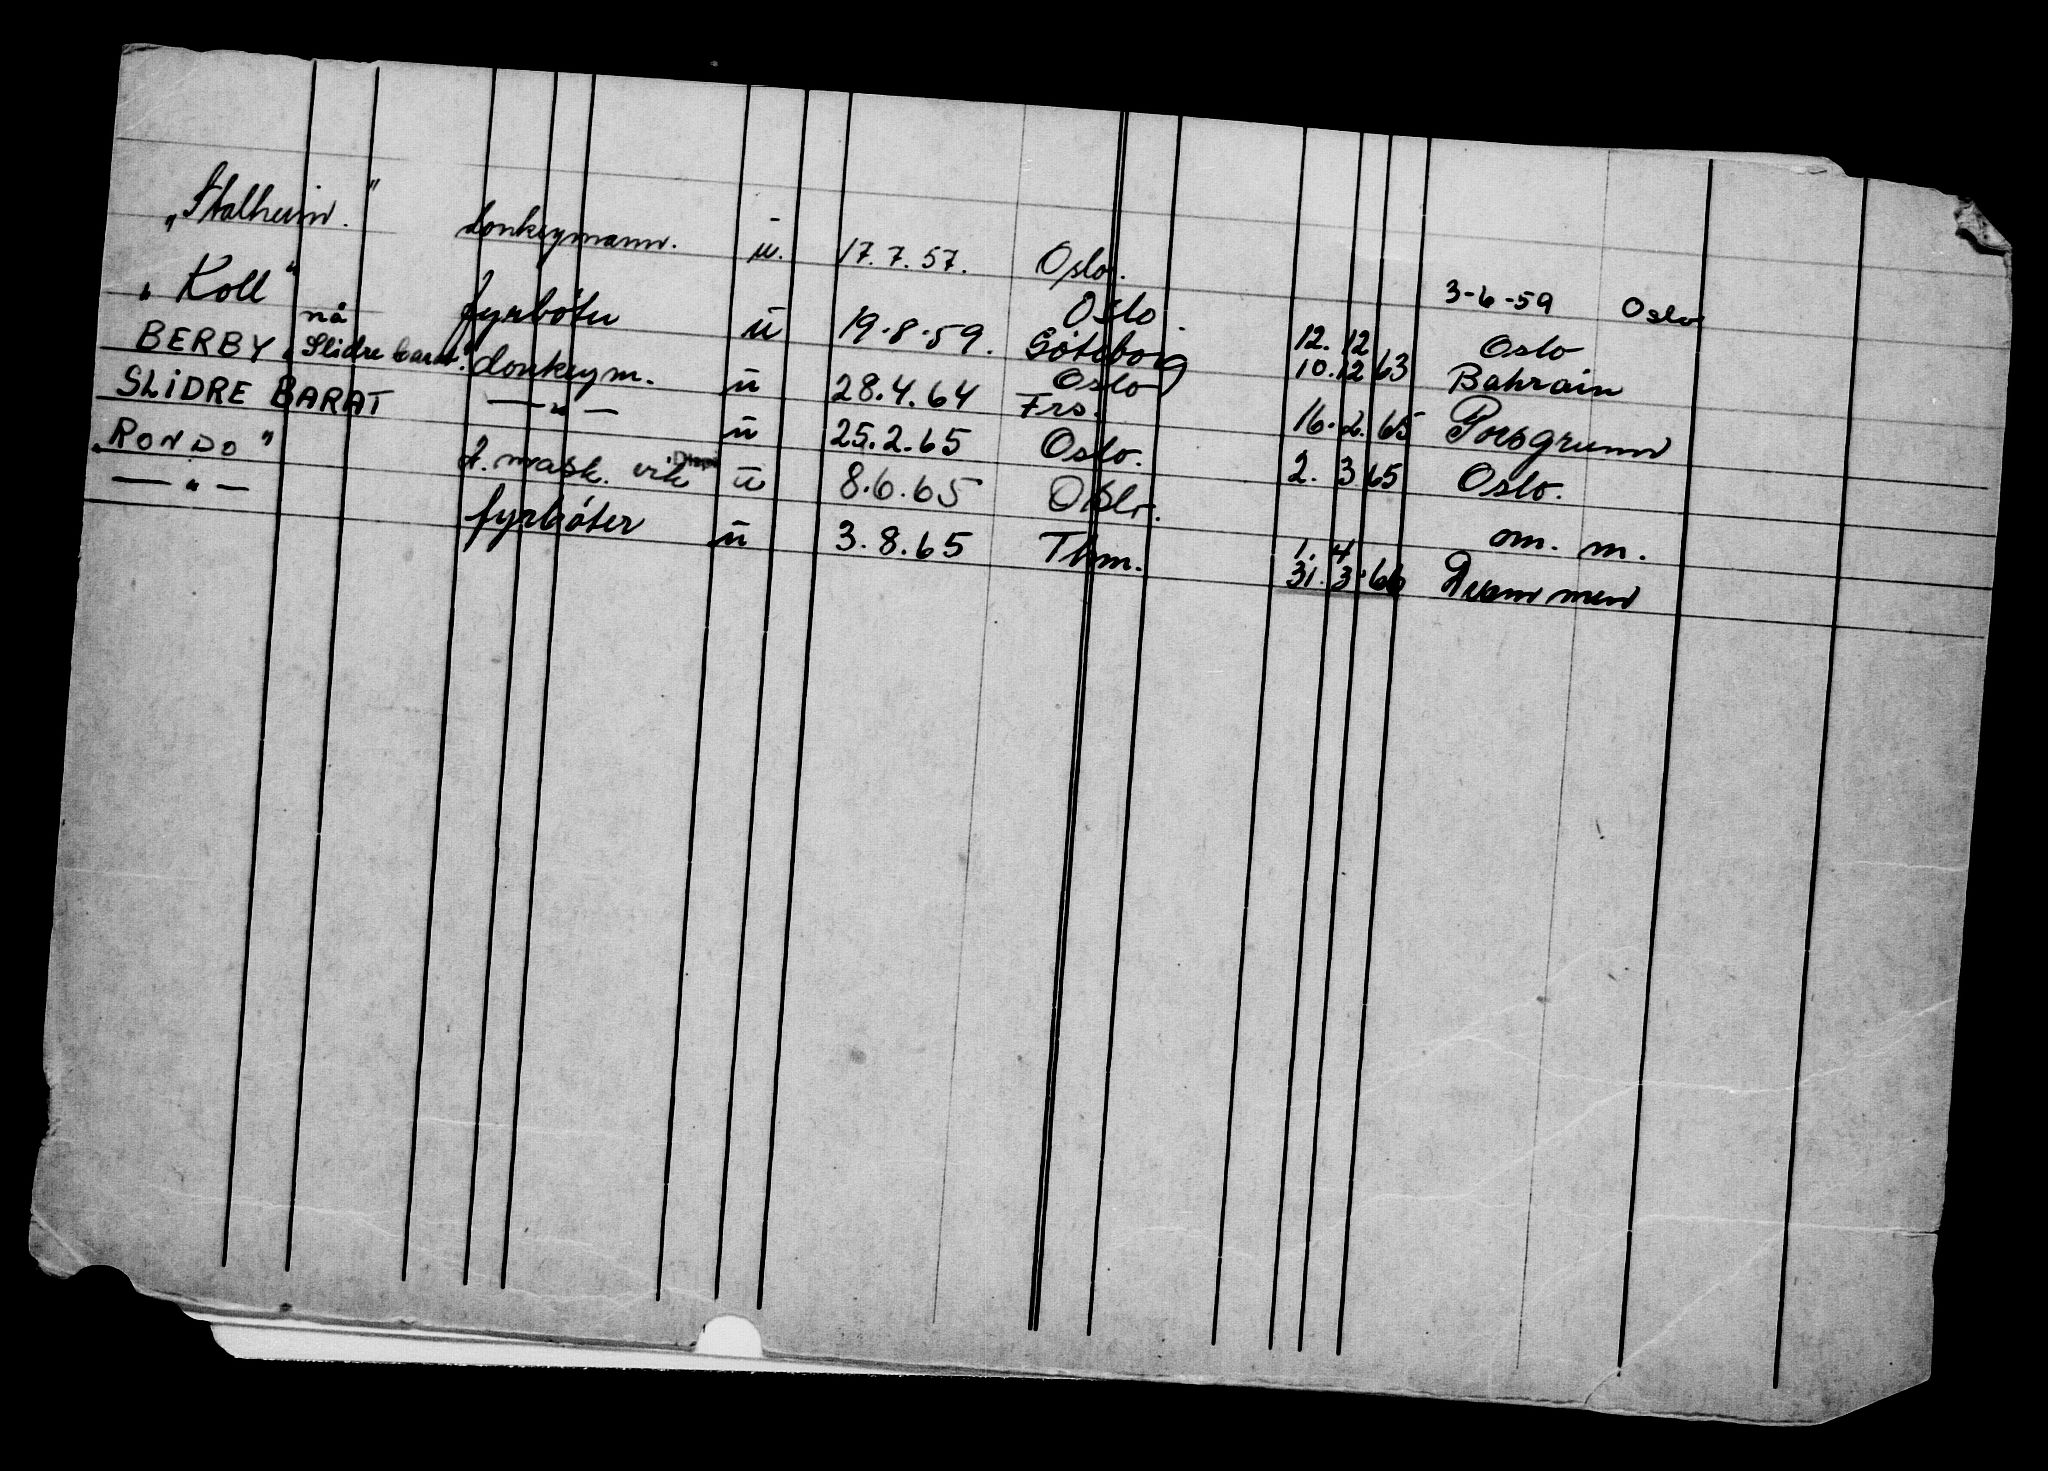 „Stalheim." donkeymann. ū. 17.7.57. Oslo. 3-6-59 Oslo
„Koll" fyrbøter ū 19.8.59. Oslo. Göteborg 12. 12 Oslo
BERBY nå „Slidre barat." donkeym. ū 28.4.64 Oslo Frs. 10.12 63 Bahrain
SLIDRE BARAT —„— ū 25.2.65 Oslo. 16.2.65 Porsgrunn
„RONDO" 2. mask. vik Disp ū 8.6.65 Oslo. 2. 3 65 Oslo.
—„— fyrbøter ū 3.8.65 Thm. om. m.
1. 4
31. 3.66 Drammen